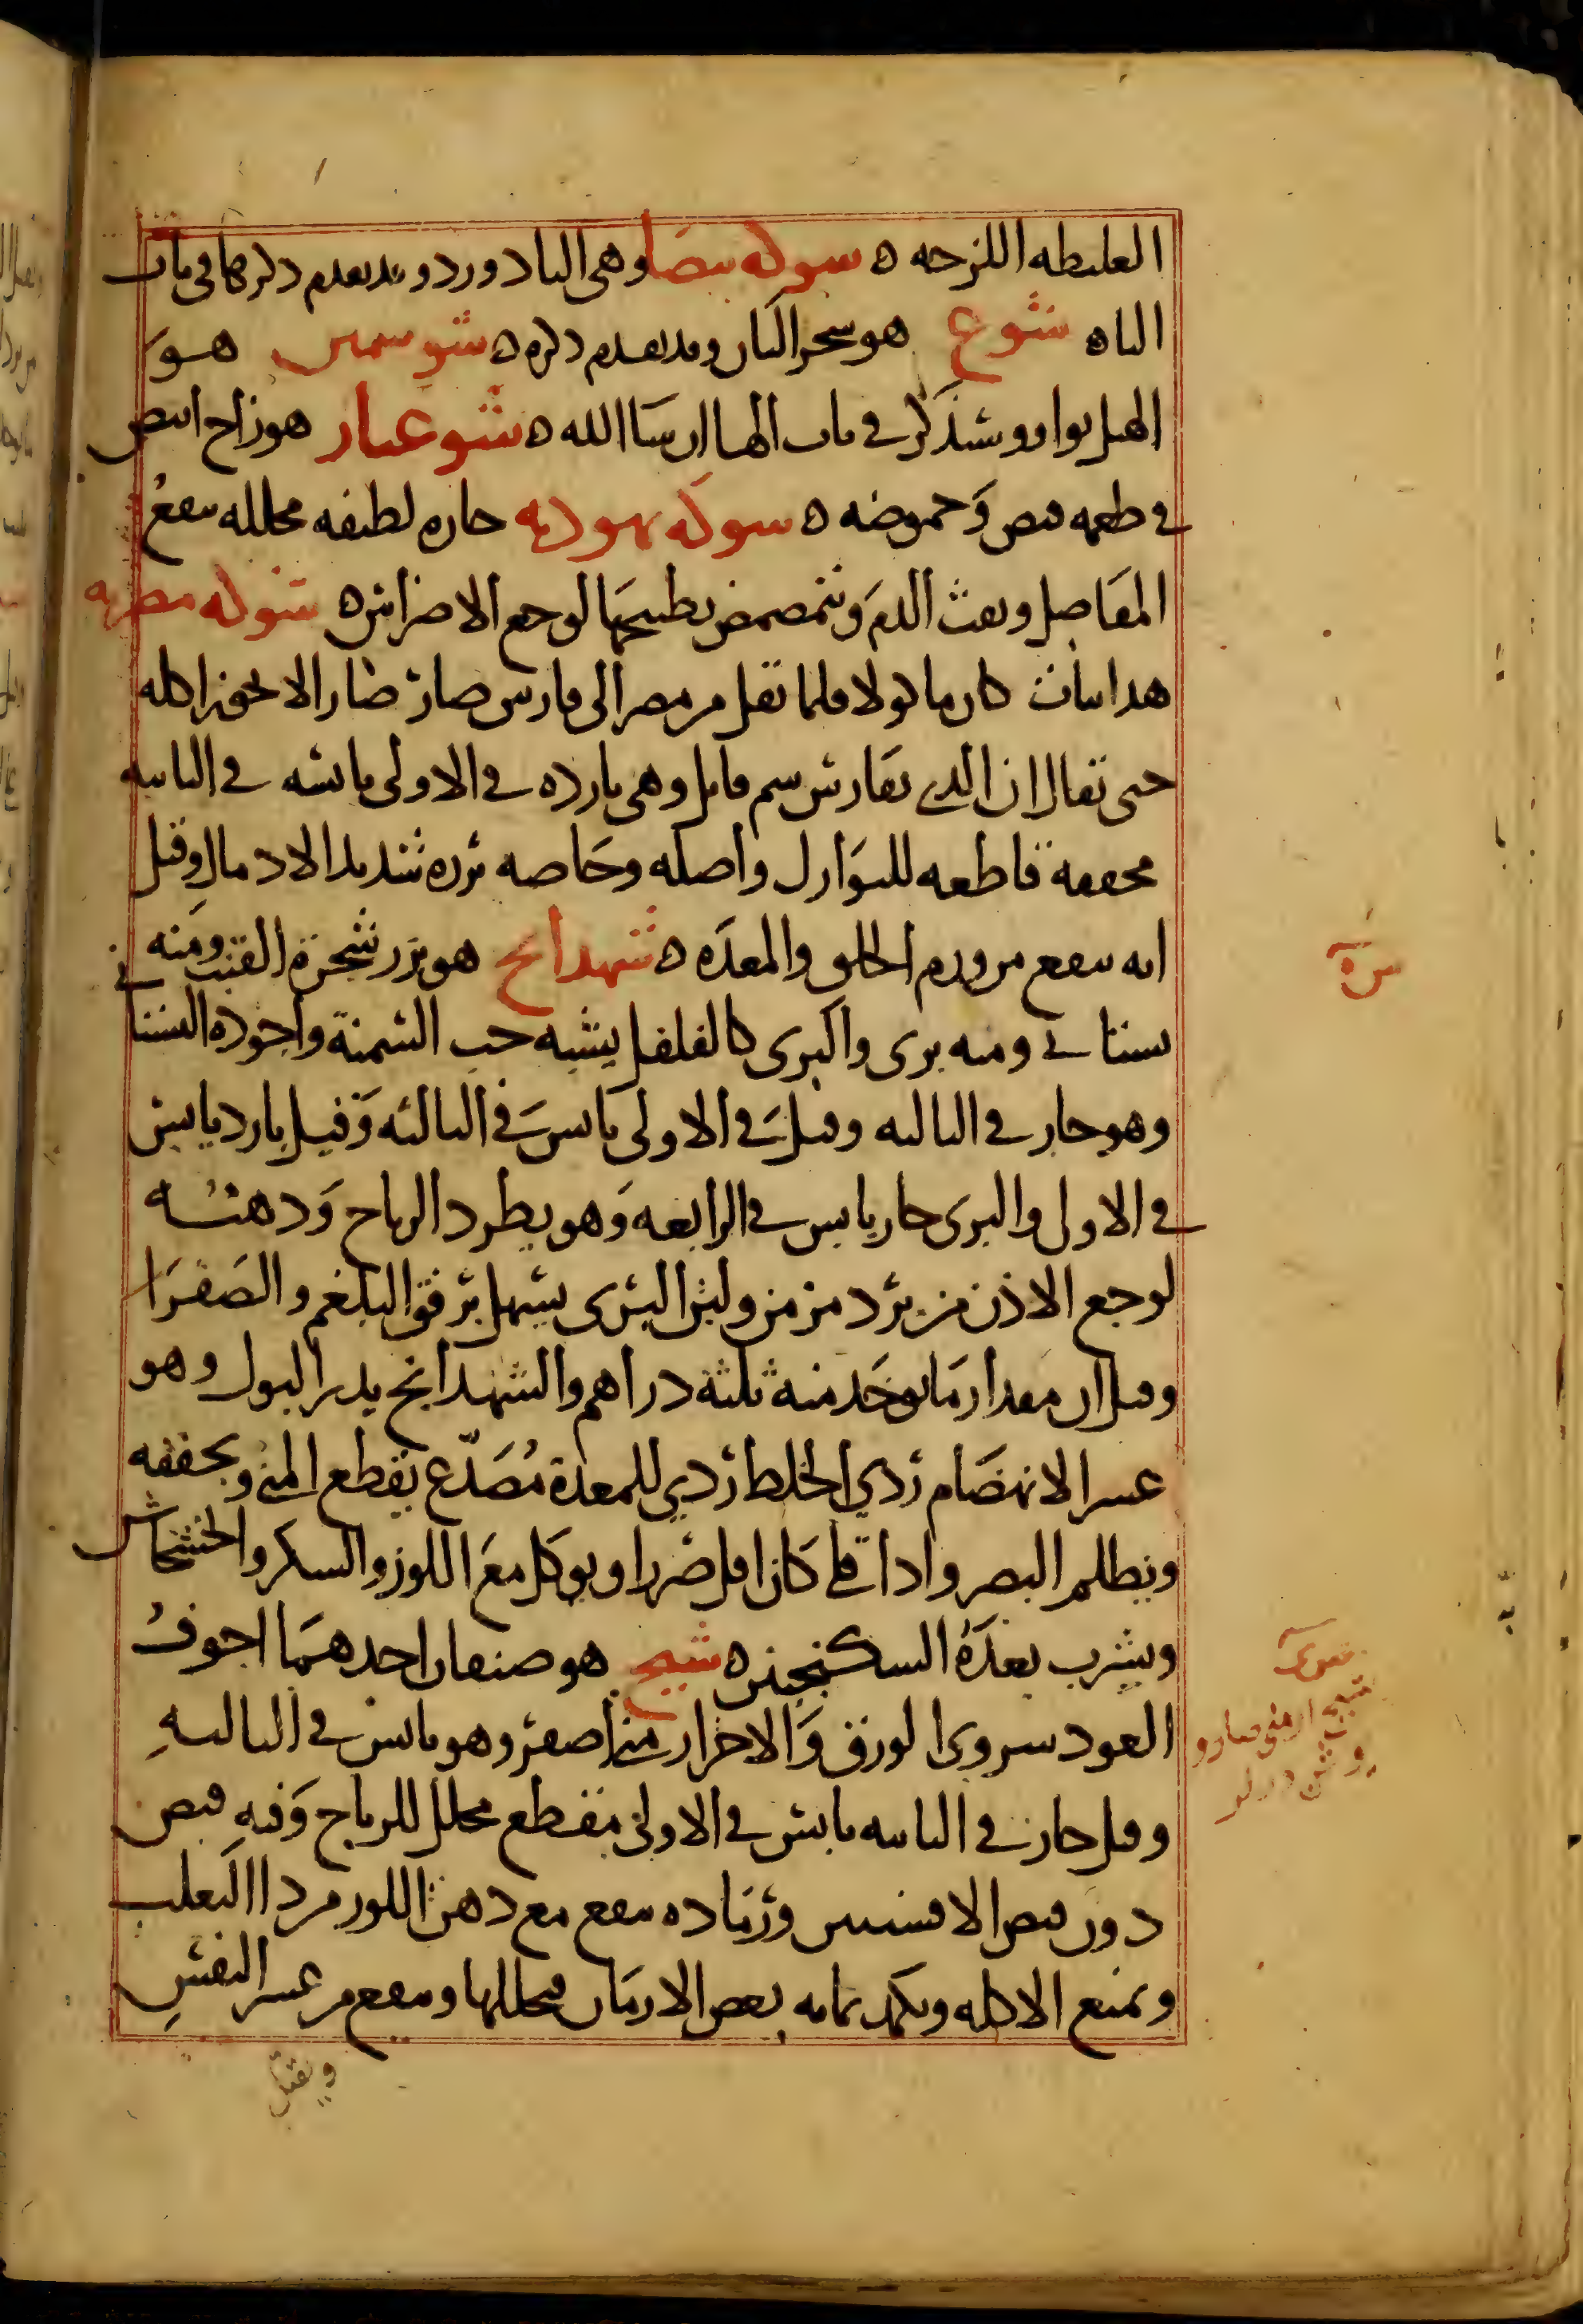 الغليظه اللزجه ه شوكه بيضا وهى البادورد وقد تقدم ذكرها فى باب
الباه شوع هو شجر البان وقد تقدم ذكره ه شوشمير هو
الهيل بوا وسنذكر فى باب الها ان شا الله ه شوعبار هو زاج ابيض
فى طعمه قبض وحموضه ه شوكه يهوديه حاره لطيفه محلله تنفع
المفاصل ونفث الدم ويتمضمض بطبيخها لوجع الاضراس ه شوكه مصريه
هذا نبات كان ماكولا فلما نقل من مصر الى فارس صار ضارا لا يجوز اكله
حتى يقال ان الذى بفارس سم قاتل وهى بارده فى الاولى يابسه فى الثانيه
مجففة قاطعه للنوازل واصله وخاصه بزره شديد الادمال وقيل
انه ينفع من ورم الحلق والمعده ه شهدانج هو بزر شجرة القنب ومنه
بستانى ومنه برى والبرى كالفلفل يشبه حب السمنة واجوده البستانى
وهو حار فى الثالثه وقيل فى الاولى يابس فى الثالثه وقيل بارد يابس
فى الاولى والبرى حار يابس فى الرابعه وهو يطرد الرياح ودهنه
لوجع الاذن من برد مزمن ولبن البرى يسهل برفق البلغم والصفرا
وقيل ان مقدار ما يوخذ منه ثلثة دراهم والشهدانج يدر البول وهو
عسر الانهضام ردي الخلط ردي للمعدة مصدّع يقطع المنى ويجففه
ويظلم البصر واذا قلى كان اقل ضررا ويوكل مع اللوز والسكر والخشخاش
ويشرب بعده السكنجبين ه شيح هو صنفان احدهما اجوف
العود سروى الورق والاخر ارمنى اصفر وهو يابس فى الثالثه
وقيل حار فى الثانيه يابس فى الاولى مقطع محلل للرياح وفيه قبض
دون قبض الافسنتين ورماده ينفع مع دهن اللوز من دا الثعلب
ويمنع الاكله ويكمد بمايه بعض الارماد فيحللها وينفع من عسر النفس
ويقتل
شيح ارمنى